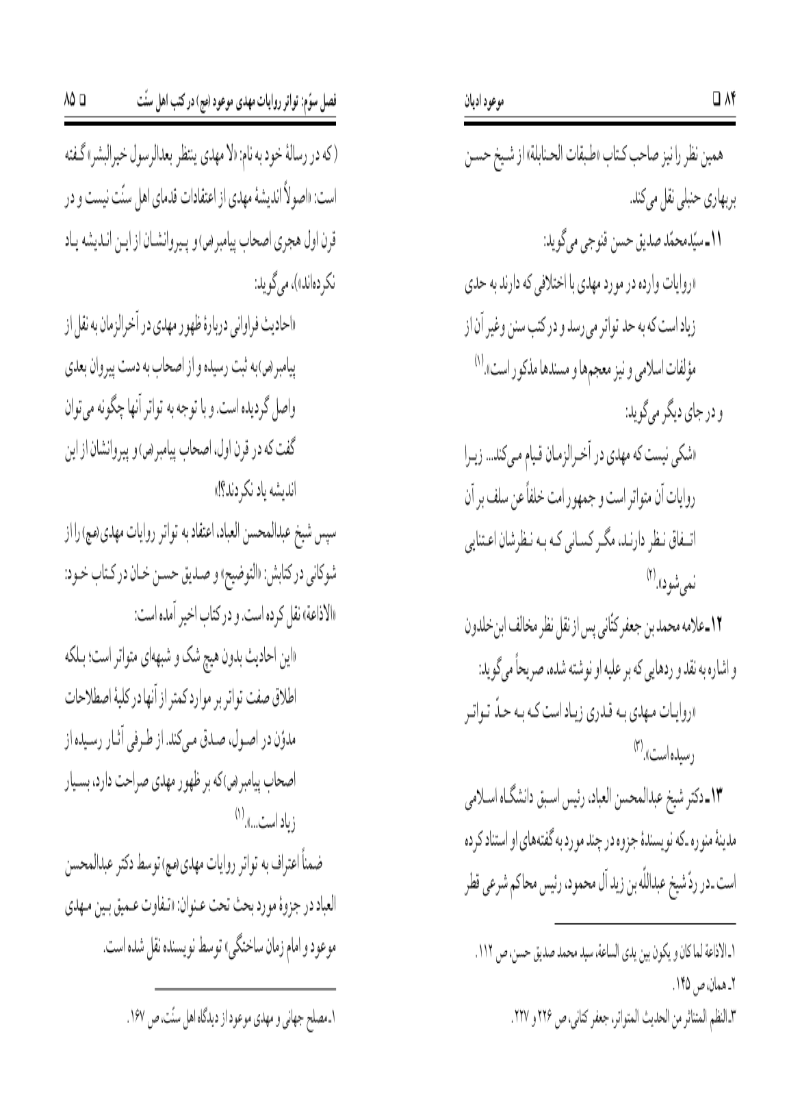 ۸۴ ❑ موعود ادیان
همین نظر را نیز صاحب کتاب «طبقات الحنابلة» از شیخ حسن
بربهاری حنبلی نقل می‌کند.
۱۱ـ سیّدمحمّد صدیق حسن قنوجی می‌گوید:
«روایات وارده در مورد مهدی با اختلافی که دارند به حدی
زیاد است که به حد تواتر می‌رسد و در کتب سنن وغیر آن از
مؤلفات اسلامی و نیز معجم‌ها و مسندها مذکور است».(۱)
و در جای دیگر می‌گوید:
«شکی نیست که مهدی در آخرالزمان قیام می‌کند... زیرا
روایات آن متواتر است و جمهور امت خلفاً عن سلف بر آن
اتفاق نظر دارند، مگر کسانی که به نظرشان اعتنایی
نمی‌شود».(۲)
۱۲ـ علامه محمد بن جعفر کتّانی پس از نقل نظر مخالف ابن‌خلدون
و اشاره به نقد و ردهایی که بر علیه او نوشته شده، صریحاً می‌گوید:
«روایات مهدی به قدری زیاد است که به حدّ تواتر
رسیده است».(۳)
۱۳ـ دکتر شیخ عبدالمحسن العباد، رئیس اسبق دانشگاه اسلامی
مدینۀ منوره ـ که نویسندۀ جزوه در چند مورد به گفته‌های او استناد کرده
است ـ در ردّ شیخ عبداللّه بن زید آل محمود، رئیس محاکم شرعی قطر
۱ـ الاذاعة لماکان و یکون بین یدی الساعة، سید محمد صدیق حسن، ص ۱۱۲.
۲ـ همان، ص ۱۴۵.
۳ـ النظم المتناثر من الحدیث المتواتر، جعفر کتانی، ص ۲۲۶ و ۲۲۷.
فصل سوّم: تواتر روایات مهدی موعود (عج) در کتب اهل سنّت ❑ ۸۵
( که در رسالۀ خود به نام: «لا مهدی ینتظر بعدالرسول خیرالبشر» گفته
است: «اصولاً اندیشۀ مهدی از اعتقادات قدمای اهل سنّت نیست و در
قرن اول هجری اصحاب پیامبر(ص) و پیروانشان از این اندیشه یاد
نکرده‌اند»)، می‌گوید:
«احادیث فراوانی دربارۀ ظهور مهدی در آخرالزمان به نقل از
پیامبر(ص) به ثبت رسیده و از اصحاب به دست پیروان بعدی
واصل گردیده است. و با توجه به تواتر آنها چگونه می‌توان
گفت که در قرن اول، اصحاب پیامبر(ص) و پیروانشان از این
اندیشه یاد نکردند؟!»
سپس شیخ عبدالمحسن العباد، اعتقاد به تواتر روایات مهدی(عج) را از
شوکانی در کتابش: «التوضیح» و صدیق حسن خان در کتاب خود:
«الاذاعة» نقل کرده است. و در کتاب اخیر آمده است:
«این احادیث بدون هیچ شک و شبهه‌ای متواتر است؛ بلکه
اطلاق صفت تواتر بر موارد کمتر از آنها در کلیۀ اصطلاحات
مدوّن در اصول، صدق می‌کند. از طرفی آثار رسیده از
اصحاب پیامبر(ص) که بر ظهور مهدی صراحت دارد، بسیار
زیاد است...».(۱)
ضمناً اعتراف به تواتر روایات مهدی(عج) توسط دکتر عبدالمحسن
العباد در جزوۀ مورد بحث تحت عنوان: «تفاوت عمیق بین مهدی
موعود و امام زمان ساختگی» توسط نویسنده نقل شده است.
۱ـ مصلح جهانی و مهدی موعود از دیدگاه اهل سنّت، ص ۱۶۷.